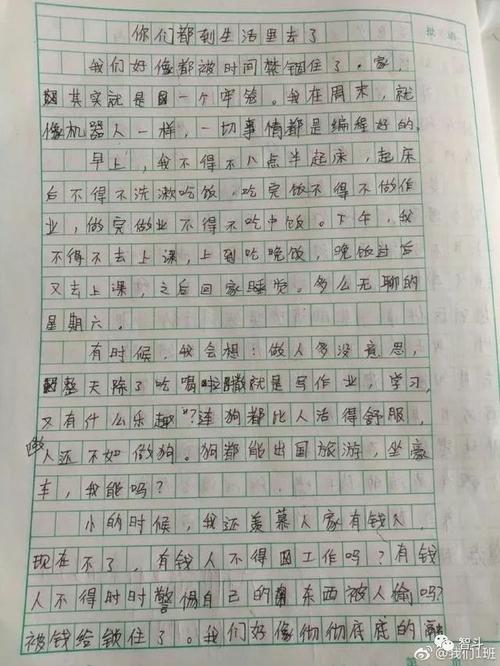 你们都到生活里去了
我们好像都被时间禁锢住了。家,
其实就是一个牢笼。我在周末,就
像机器人一样,一切事情都是编程好的。
早上,我不得不八点半起床,起床
后不得不洗漱吃饭,吃完饭不得不做作
业,做完做业不得不吃中饭。下午,我
不得不去上课,上到吃晚饭,晚饭过后
又去上课,之后回家睡觉。多么无聊的
星期六。
有时候,我会想:做人多没意思,
整天除了吃喝拉撒就是写作业,学习,
又有什么乐趣?连狗都比人活得舒服,
做人还不如做狗。狗都能出国旅游,坐豪
车,我能吗?
小的时候,我还羡慕人家有钱人,
现在不了,有钱人不得工作吗?有钱
人不得时时警惕自己的东西被人偷吗?
被钱给锁住了。我们好像彻彻底底的
智斗
@我们1班